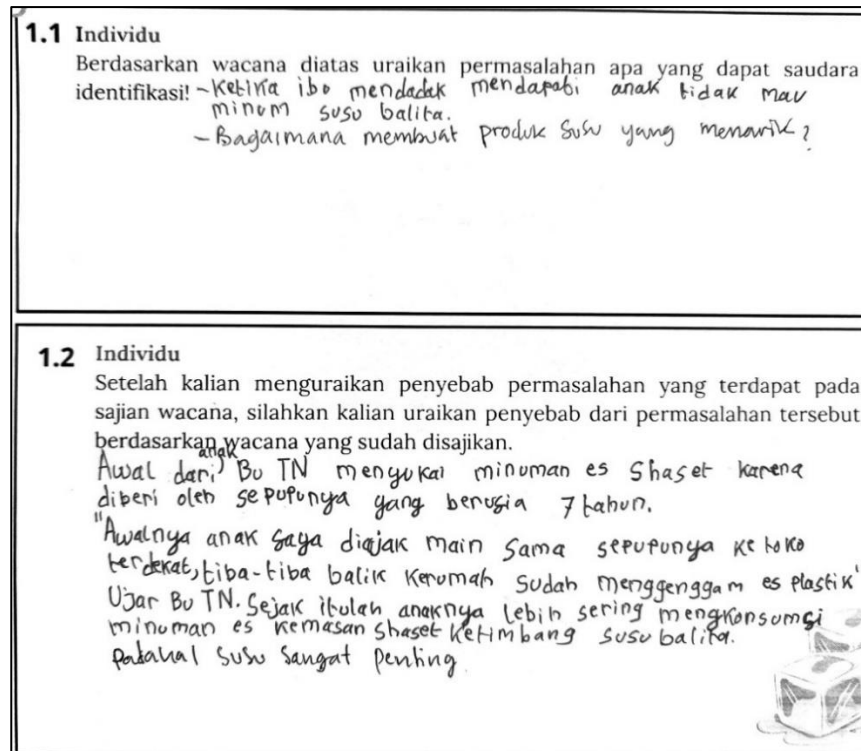 1.1 Individu
Berdasarkan wacana diatas uraikan permasalahan apa yang dapat saudara
identifikasi! - Ketika ibu mendadak mendapati anak tidak mau
minum susu balita.
- Bagaimana membuat produk susu yang menarik?
1.2 Individu
Setelah kalian menguraikan penyebab permasalahan yang terdapat pada
sajian wacana, silahkan kalian uraikan penyebab dari permasalahan tersebut
berdasarkan wacana yang sudah disajikan.
Awal dari anak Bu TN menyukai minuman es Shaset karena
diberi oleh sepupunya yang berusia 7 tahun.
"Awalnya anak saya diajak main sama sepupunya ke toko
terdekat, tiba-tiba balik kerumah sudah menggenggam es plastik"
Ujar Bu TN. Sejak itulah anaknya lebih sering mengkonsumsi
minuman es kemasan shaset ketimbang susu balita.
padahal susu sangat penting